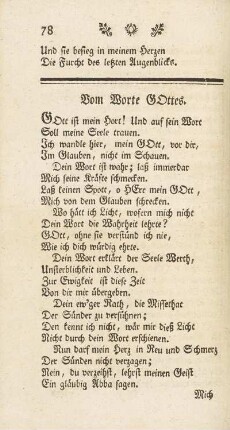 78
Und sie besieg in meinem Herzen
Die Furcht des letzten Augenblicks.
Vom Worte GOttes.
GOtt ist mein Hort! Und auf sein Wort
Soll meine Seele trauen.
Ich wandle hier, mein GOtt, vor dir,
Im Glauben, nicht im Schauen.
Dein Wort ist wahr; laß immerdar
Mich seine Kräfte schmecken.
Laß keinen Spott, o HErr mein GOtt,
Mich von dem Glauben schrecken.
Wo hätt ich Licht, wofern mich nicht
Dein Wort die Wahrheit lehrte?
GOtt, ohne sie verstünd ich nie,
Wie ich dich würdig ehrte.
Dein Wort erklärt der Seele Werth,
Unsterblichkeit und Leben.
Zur Ewigkeit ist diese Zeit
Von dir mir übergeben.
Dein ew'ger Rath, die Missethat
Der Sünder zu versühnen;
Den kennt ich nicht, wär mir dieß Licht
Nicht durch dein Wort erschienen.
Nun darf mein Herz in Reu und Schmerz
Der Sünden nicht verzagen;
Nein, du verzeihst, lehrst meinen Geist
Ein gläubig Abba sagen.
Mich